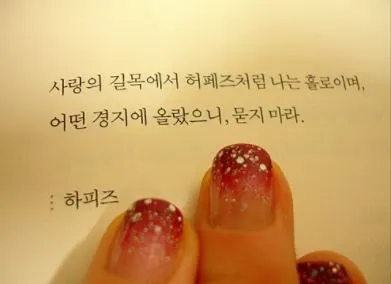 사랑의 길목에서 허페즈처럼 나는 홀로이며,
어떤 경지에 올랐으니, 묻지 마라.
⋮ 하피즈